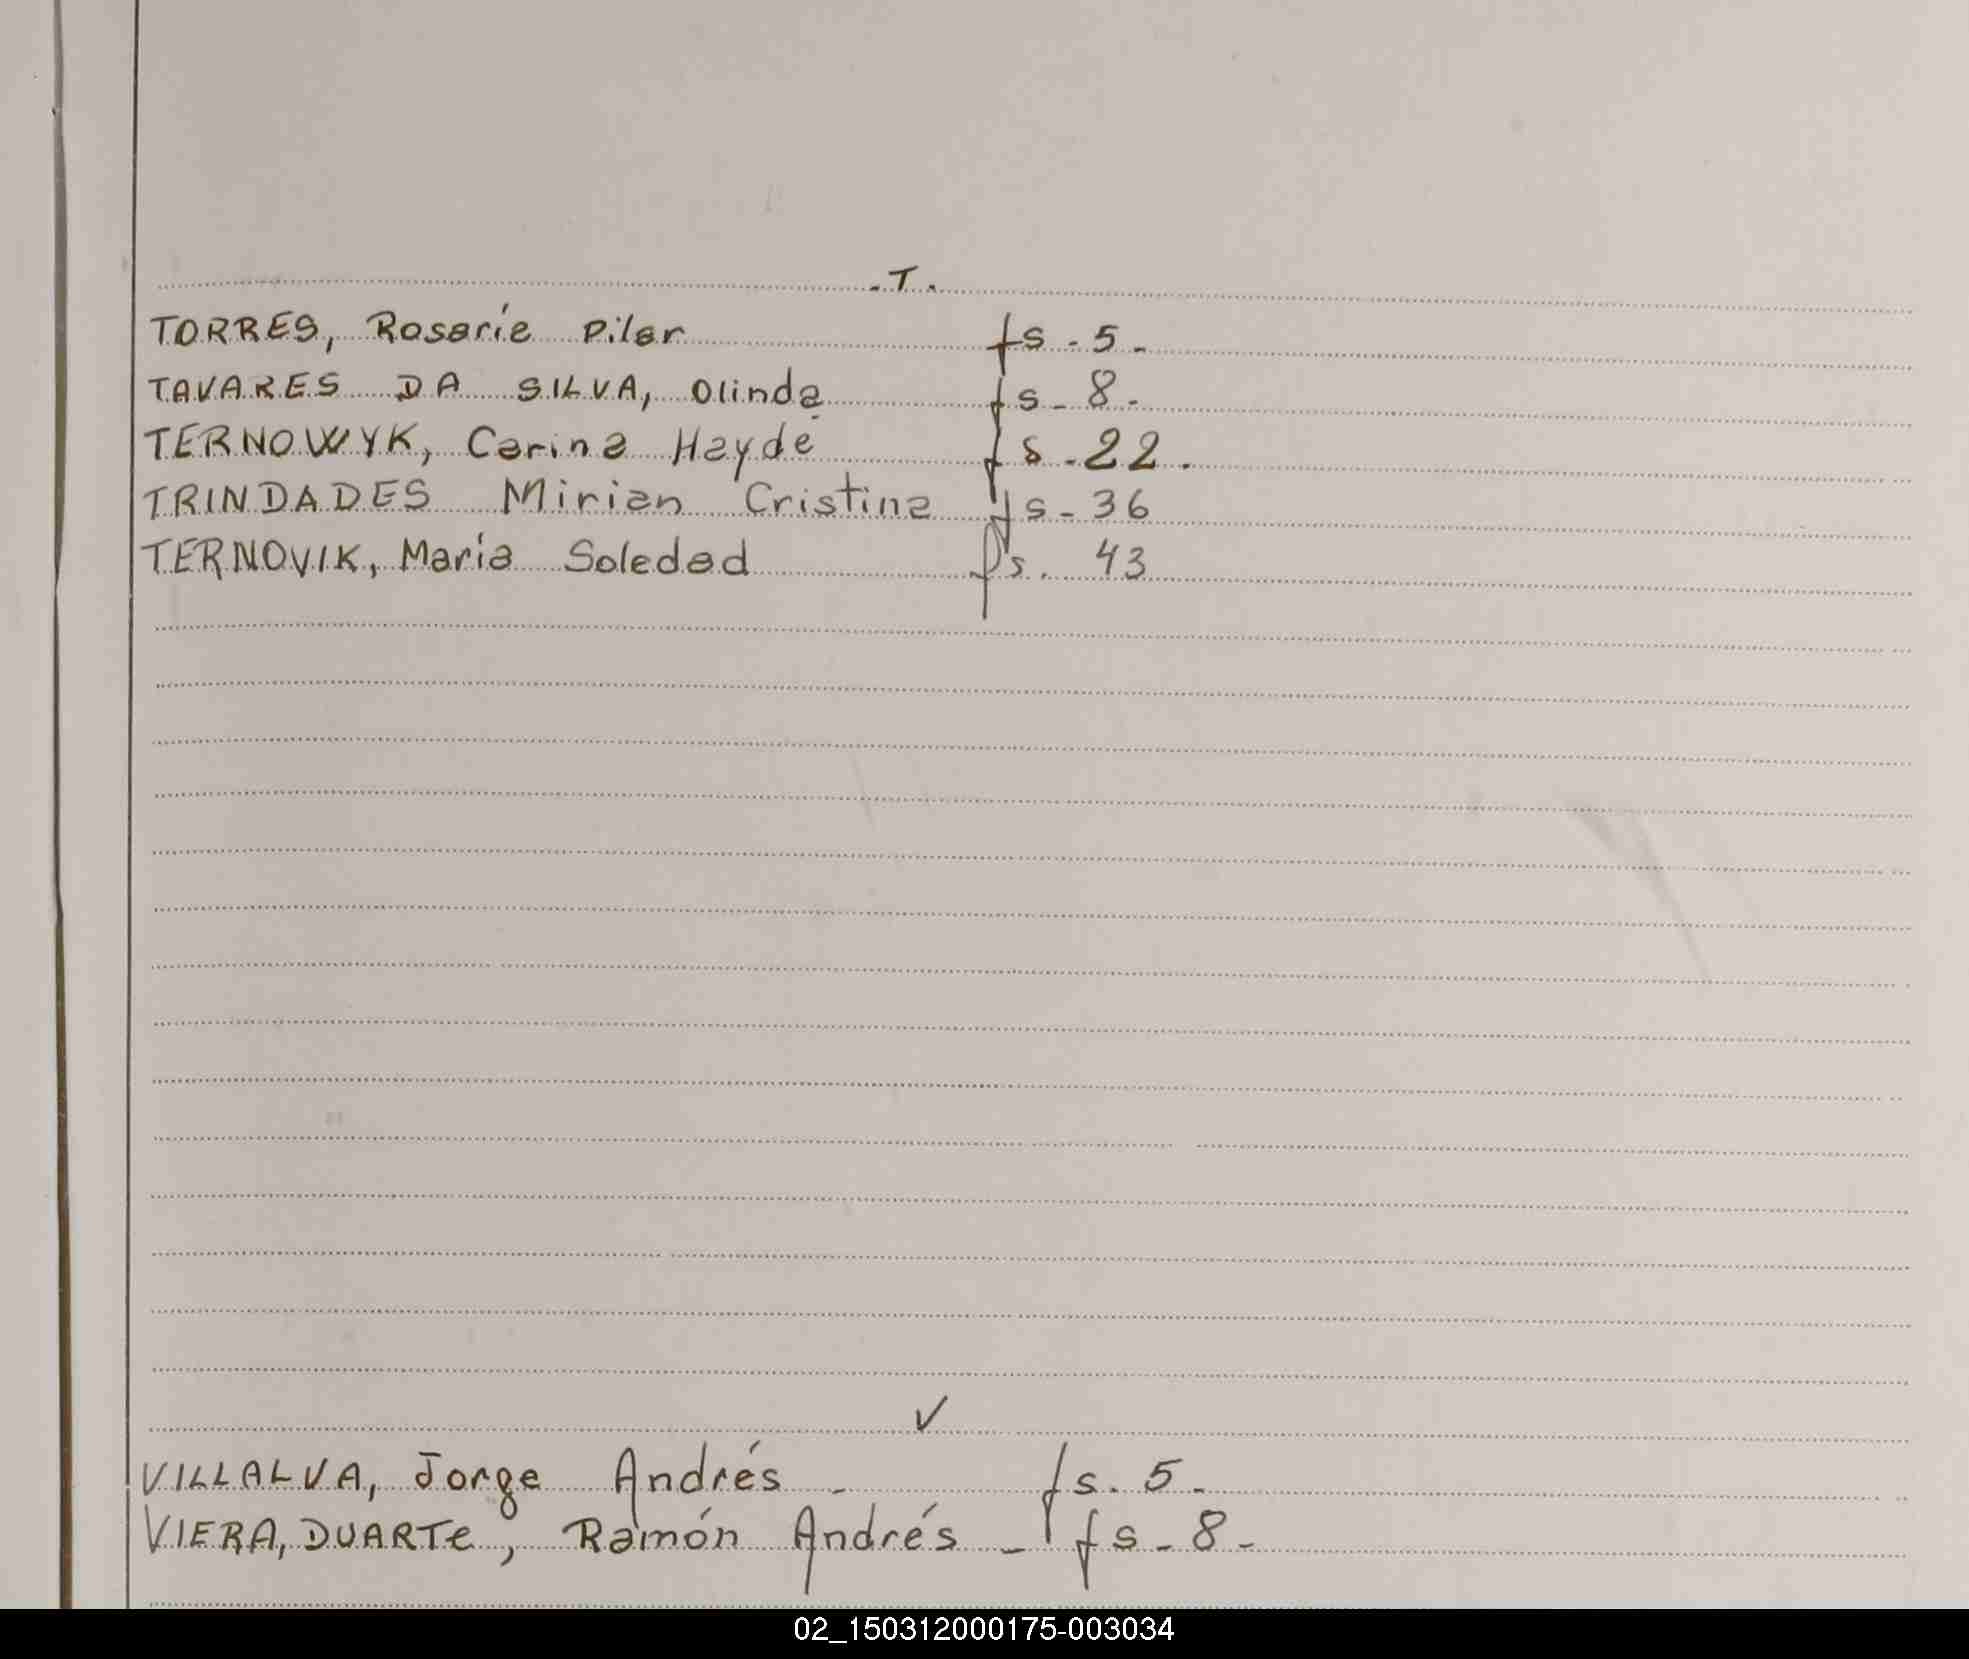 . T .
TORRES, Rosaríe Pilar fs - 5 -
TAVARES DA SILVA, Olinda fs - 8 -
TERNOWYK, Carina Haydé fs - 22 .
TRINDADES Mirian Cristina fs - 36
TERNOVIK, María Soledad fs. 43
V
VILLALVA, Jorge Andrés - fs. 5 -
VIERA, DUARTe, Ramón Andrés - fs - 8 -
02_150312000175-003034